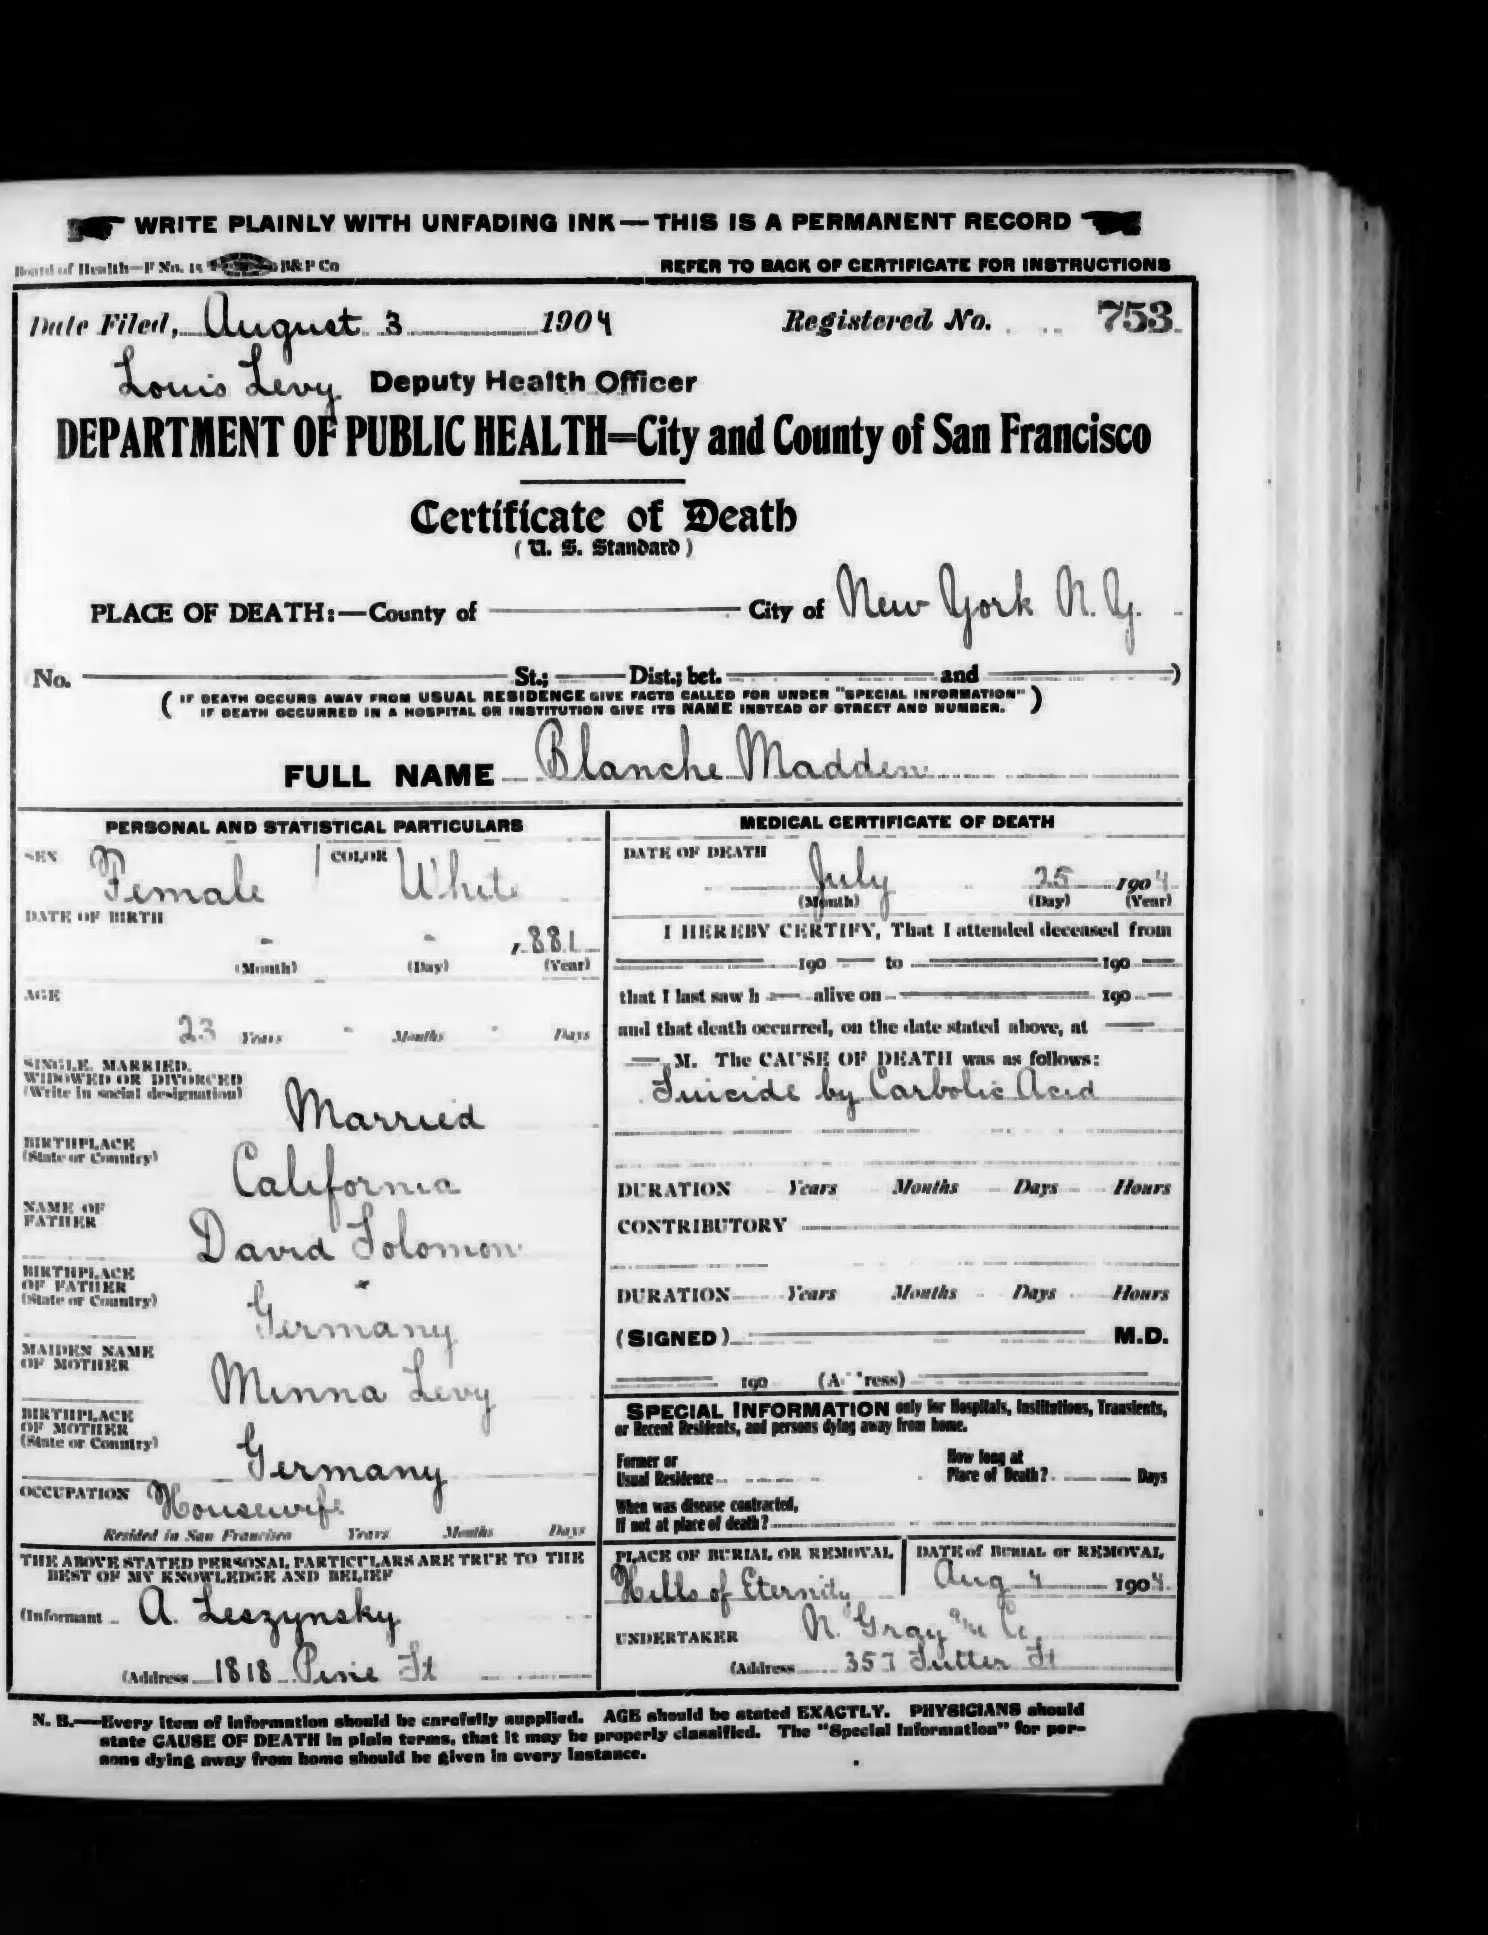 WRITE PLAINLY WITH UNFADING INK—THIS IS A PERMANENT RECORD
Board of Health—F No. 15 B&P Co REFER TO BACK OF CERTIFICATE FOR INSTRUCTIONS
Date Filed, August 3 1904 Registered No. 753
Louis Levy Deputy Health Officer
DEPARTMENT OF PUBLIC HEALTH=City and County of San Francisco
Certificate of Death
(U. S. Standard)
PLACE OF DEATH:—County of — City of New York N.Y.
No. St.; Dist.; bet. and )
( IF DEATH OCCURS AWAY FROM USUAL RESIDENCE GIVE FACTS CALLED FOR UNDER "SPECIAL INFORMATION" )
IF DEATH OCCURRED IN A HOSPITAL OR INSTITUTION GIVE ITS NAME INSTEAD OF STREET AND NUMBER.
FULL NAME Blanche Madden
PERSONAL AND STATISTICAL PARTICULARS
SEX Female COLOR White
DATE OF BIRTH
- - 1881
(Month) (Day) (Year)
AGE
23 Years - Months - Days
SINGLE, MARRIED,
WIDOWED OR DIVORCED
(Write in social designation)
Married
BIRTHPLACE
(State or Country)
California
NAME OF
FATHER
David Solomon
BIRTHPLACE
OF FATHER
(State or Country)
Germany
MAIDEN NAME
OF MOTHER
Minna Levy
BIRTHPLACE
OF MOTHER
(State or Country)
Germany
OCCUPATION Housewife
Resided in San Francisco Years Months Days
THE ABOVE STATED PERSONAL PARTICULARS ARE TRUE TO THE
BEST OF MY KNOWLEDGE AND BELIEF
(Informant A. Leszynsky
(Address 1818 Pine St
MEDICAL CERTIFICATE OF DEATH
DATE OF DEATH
July 25 1904
(Month) (Day) (Year)
I HEREBY CERTIFY, That I attended deceased from
190 to 190
that I last saw h alive on 190
and that death occurred, on the date stated above, at
M. The CAUSE OF DEATH was as follows:
Suicide by Carbolic Acid
DURATION Years Months Days Hours
CONTRIBUTORY
DURATION Years Months Days Hours
(SIGNED) M.D.
190 (Address)
SPECIAL INFORMATION only for Hospitals, Institutions, Transients,
or Recent Residents, and persons dying away from home.
Former or
Usual Residence
How long at
Place of Death? Days
When was disease contracted,
If not at place of death?
PLACE OF BURIAL OR REMOVAL
Hills of Eternity
DATE of BURIAL or REMOVAL
Aug 4 1904
UNDERTAKER N. Gray and Co.
(Address 357 Sutter St
N. B.—Every item of information should be carefully supplied. AGE should be stated EXACTLY. PHYSICIANS should
state CAUSE OF DEATH in plain terms, that it may be properly classified. The "Special Information" for per-
sons dying away from home should be given in every instance.